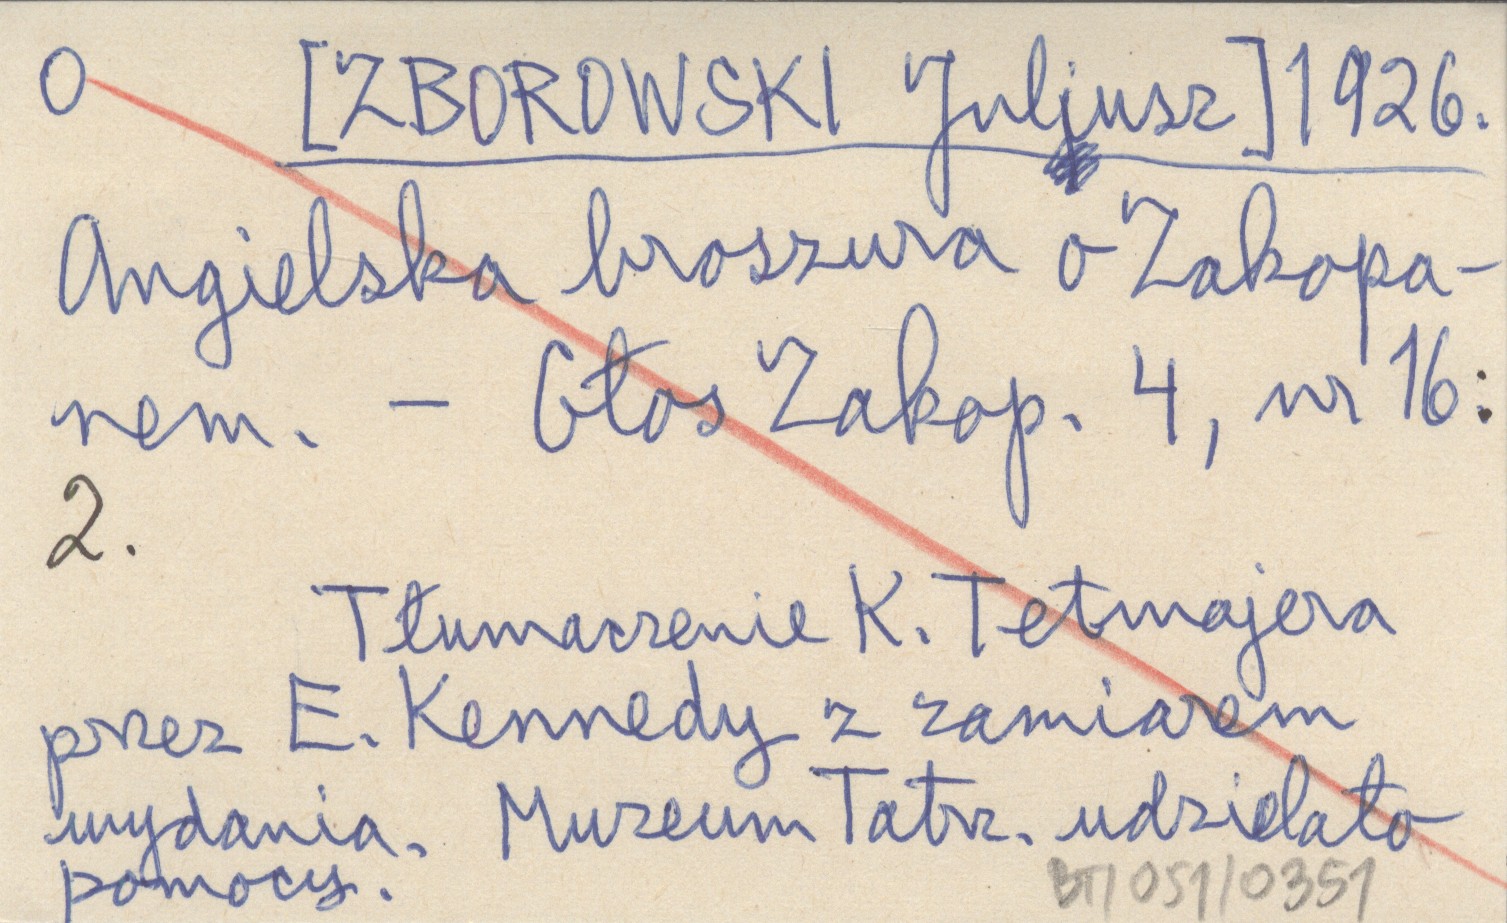 O [ZBOROWSKI Juljusz] 1926.
Angielska broszura o Zakopa-
nem. - Głos Zakop. 4, nr 16:
2.
Tłumaczenie K. Tetmajera
przez E. Kennedy z zamiarem
wydania. Muzeum Tatrz. udzielało
pomocy.
BT/051/0351